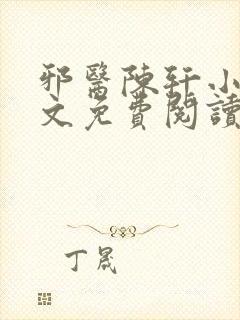 邪醫陳軒小
文免費閱讀
丁晟